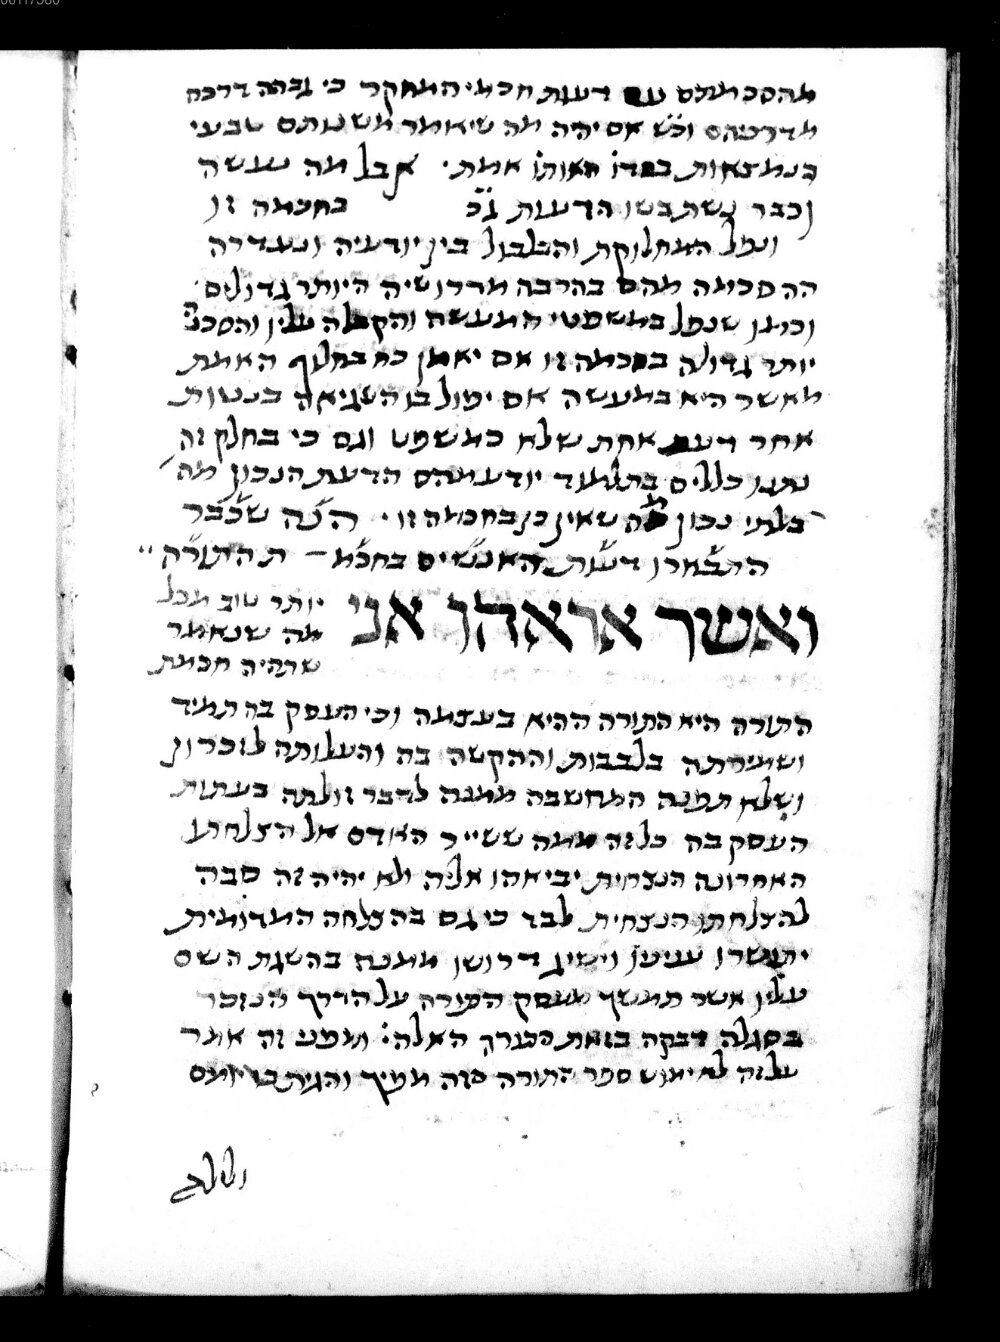 מהסכמתם עם דעות חכמי המחקר כי גבהה דרכה
מדרכיהם וכ״ש אם יהיה מה שיאמר משנותם טבעי
בנמצאות בסדו חאותו אמת אבל מה שעשה
וכבר נשתבשו הדעות ג״כ בחכמה זו
ונפל המחלוקת והבלבול בין יודעיה ונעדרה
ההסכמה מהם בהרבה מדרושיה היותר גדולים
וכמו שנפל במשפטי המעשה והקבלה עליו והסכנ׳
יותר גדולה בחכמה זו אם יאמין כח בחלוף האמת
מאשר היא במעשה אם יפול בו השגיאה בנטות
אחר דעת אחת שלא כמשפט וגם כי בחלק זה
נתנו כללים בתלמוד יודע מהם הדעת הנכון מה
בלתי נכון מה שאין כן בחכמה זו הנה שכבר
התבארו דעות האנשים בחכמ ת התורה
ואשר אראהו אני
יותר טוב מכל
מה שנאמר
שתהיה חכמת
התורה היא התורה ההיא בעצמה וכי העסק בה תמיד
ושמירתה בלבבות וההקשה בה והעלותה לזכרון
ושלא תפנה המחשבה ממנה לדבר זולתה בעתות
העסק בה כל זה ממה שישייר האדם אל הצלחתו
האחרונה הנצחית יביאהו אליה ולא יהיה זה סבה
להצלחתו הנצחית לבד כי גם בהצלחה המדומית
יתישרו עניניו וישיג דרושו ממנה בהשגת השם
עליו אשר תמשך מעסק התורה על הדרך הנזכר
בסגלה דבקה בזאת הערך האלה׳ ומפני זה אמר
על זה לא ימוש ספר התורה הזה מפיך והגית בו יומם
ולילה